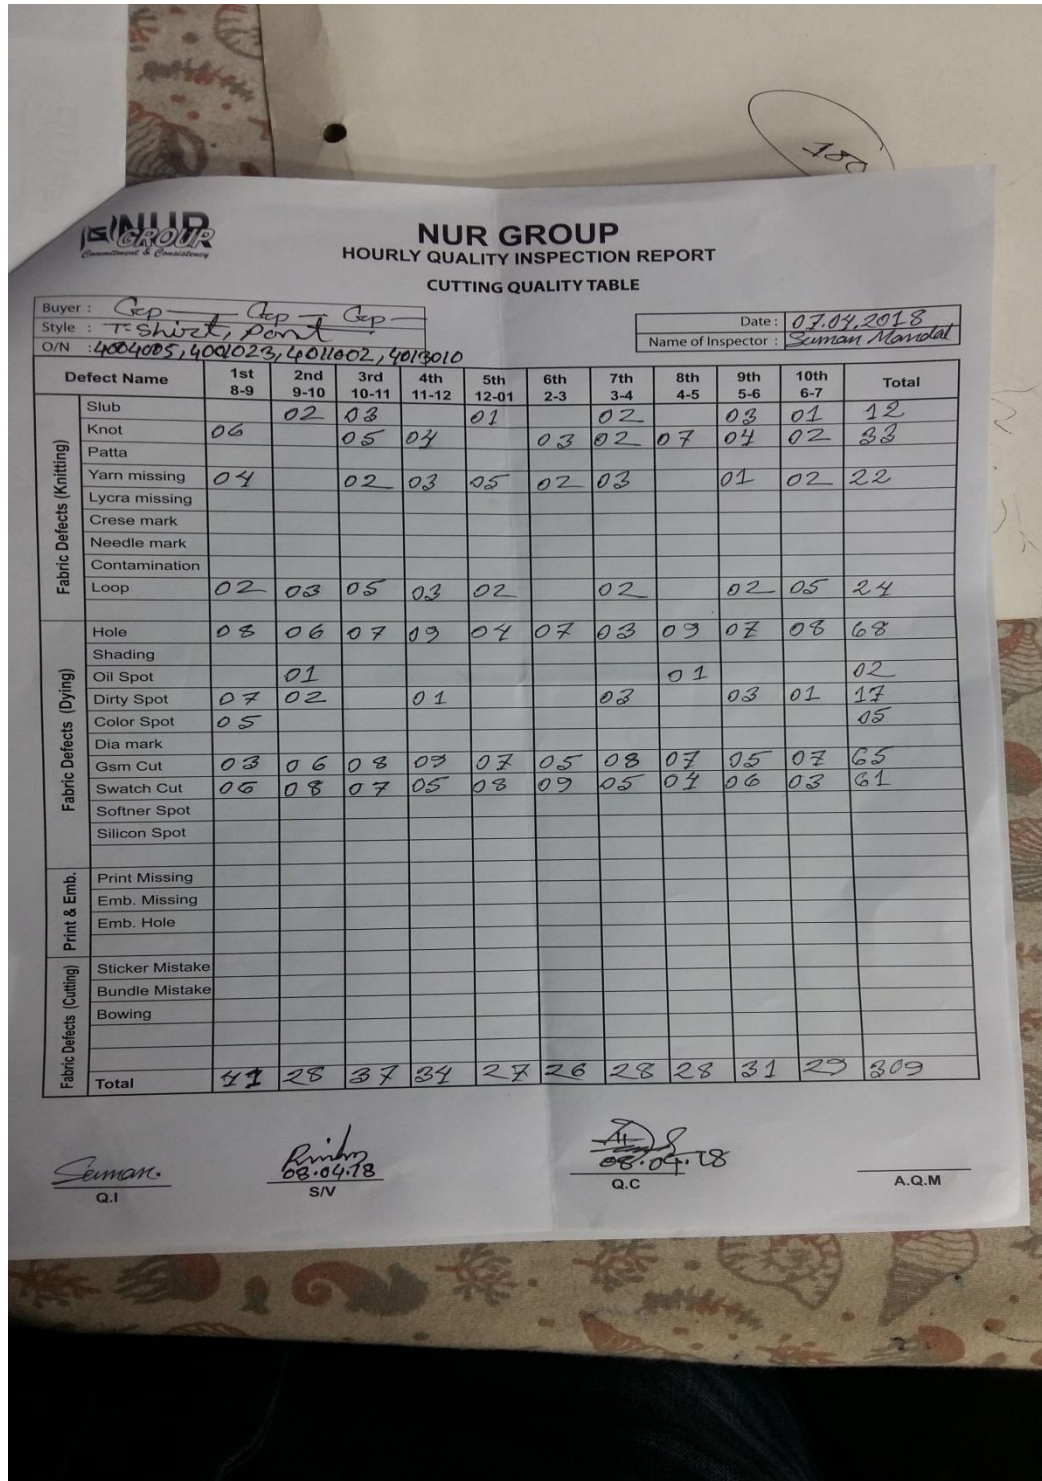 180
NUR GROUP
Commitment & Consistency
NUR GROUP
HOURLY QUALITY INSPECTION REPORT
CUTTING QUALITY TABLE
Buyer : Gap Gap Gap
Style : T-Shirt, Pant
O/N : 4004005, 4001023, 4011002, 4013010
Date : 07.04.2018
Name of Inspector : Suman Mandal
Defect Name 1st 8-9 2nd 9-10 3rd 10-11 4th 11-12 5th 12-01 6th 2-3 7th 3-4 8th 4-5 9th 5-6 10th 6-7 Total
Fabric Defects (Knitting)
Slub 02 03 01 02 03 01 12
Knot 06 05 04 03 02 07 04 02 33
Patta
Yarn missing 04 02 03 05 02 03 01 02 22
Lycra missing
Crese mark
Needle mark
Contamination
Loop 02 03 05 03 02 02 02 05 24
Fabric Defects (Dying)
Hole 08 06 07 09 04 07 03 09 07 08 68
Shading
Oil Spot 01 01 02
Dirty Spot 07 02 01 03 03 01 17
Color Spot 05 05
Dia mark
Gsm Cut 03 06 08 09 07 05 08 07 05 07 65
Swatch Cut 06 08 07 05 08 09 05 04 06 03 61
Softner Spot
Silicon Spot
Print & Emb.
Print Missing
Emb. Missing
Emb. Hole
Fabric Defects (Cutting)
Sticker Mistake
Bundle Mistake
Bowing
Total 41 28 37 34 27 26 28 28 31 29 309
Suman.
Q.I
08.04.18
S/V
08.04.18
Q.C
A.Q.M